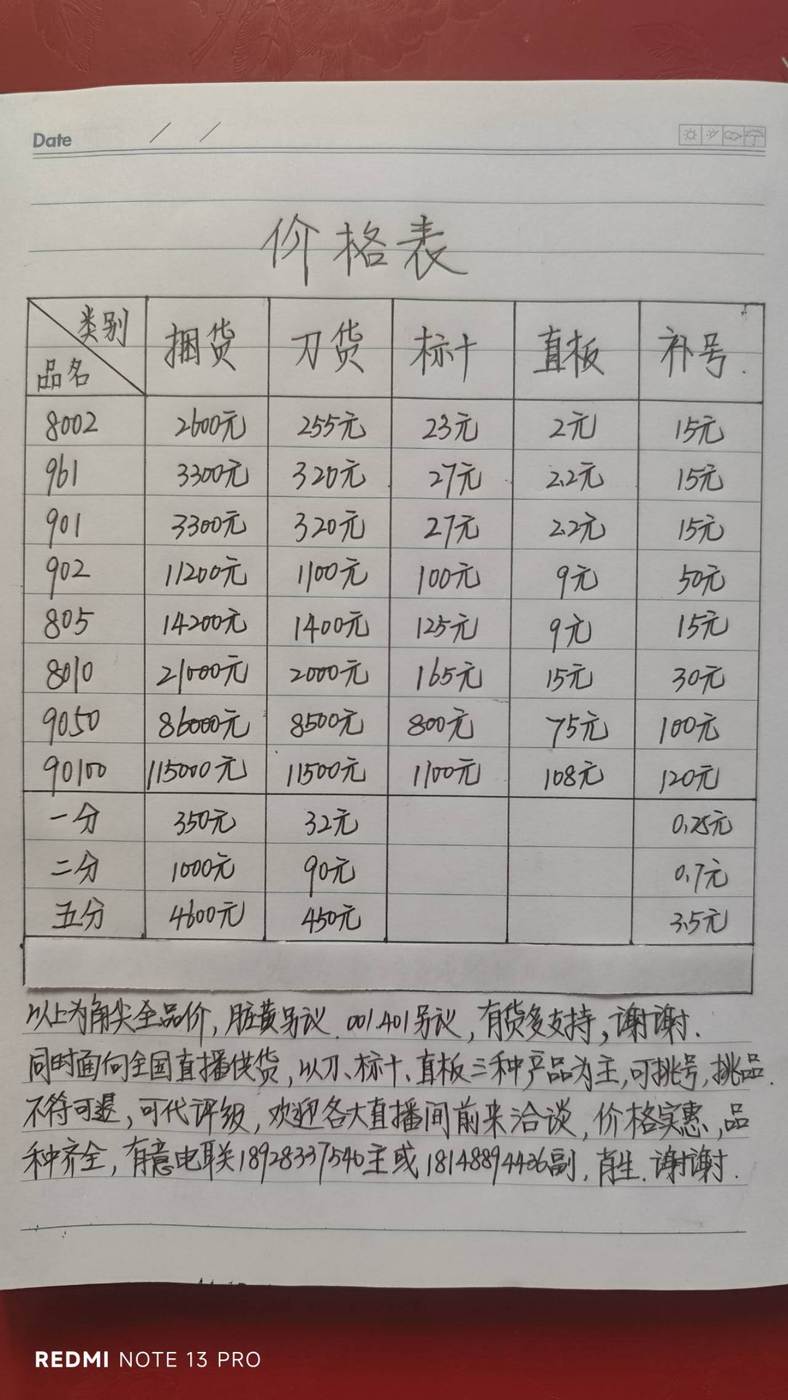 Date / /
价格表
类别 捆货 刀货 标十 直板 补号.
品名
8002 2600元 255元 23元 2元 15元
961 3300元 320元 27元 2.2元 15元
901 3300元 320元 27元 2.2元 15元
902 11200元 1100元 100元 9元 50元
805 14200元 1400元 125元 9元 15元
8010 21000元 2000元 165元 15元 30元
9050 86000元 8500元 800元 75元 100元
90100 115000元 11500元 1100元 108元 120元
一分 350元 32元 0.25元
二分 1000元 90元 0.7元
五分 4600元 450元 3.5元
以上为角尖全品价, 脏黄另议. 001.401另议, 有货多支持, 谢谢.
同时面向全国直播供货, 以刀、标十、直板三种产品为主, 可挑号, 挑品.
不符可退, 可代评级, 欢迎各大直播间前来洽谈, 价格实惠, 品
种齐全, 有意电联18928337540主或18148894436副, 肖生. 谢谢.
REDMI NOTE 13 PRO